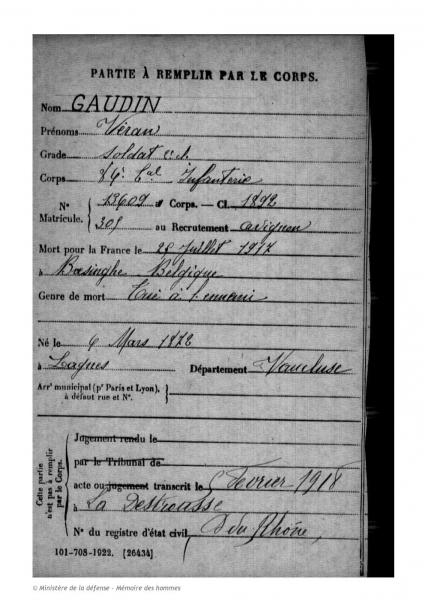 PARTIE À REMPLIR PAR LE CORPS.
Nom GAUDIN
Prénoms Véran
Grade soldat
Corps Infanterie
N° Matricule. { 13609 au Corps. — Cl. 1892
309 au Recrutement Avignon
Mort pour la France le Juillet 1917
à Boesinghe Belgique
Genre de mort Tué à l'ennemi
Né le 6 Mars 1872
à Lagnes Département Vaucluse
Arrt municipal (pr Paris et Lyon), à défaut rue et N°. {
Cette partie n'est pas à remplir par le Corps.
Jugement rendu le
par le Tribunal de
acte ou jugement transcrit le Février 1918
à La Destrousse
N° du registre d'état civil du Rhône
101-708-1922. [26434]
© Ministère de la défense - Mémoire des hommes